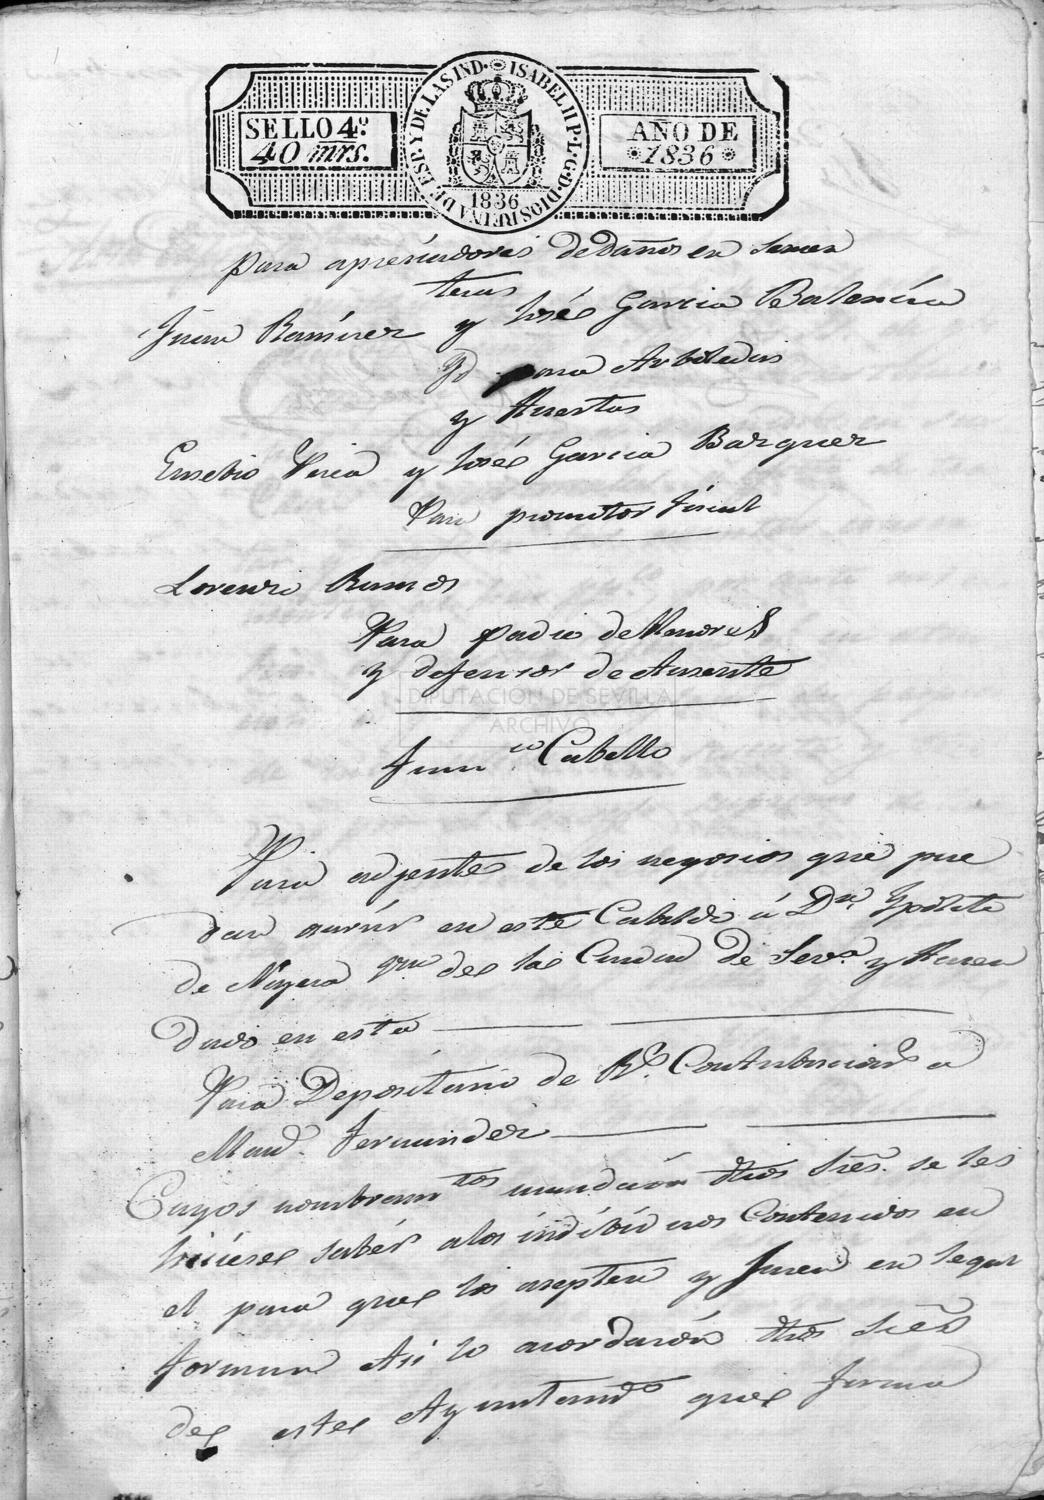 SELLO 4º
40 mrs.
ISABEL II P. L. G. D. DIOS REINA DE ESP. Y DE LAS IND.
1836
AÑO DE
1836
para apreciadores de daños en semen
teras
Juan Ramirez y José Garcia Balencia
Yd para Arboledas
y Huertas
Eusebio Vaca y José Garcia Bazquez
Para promotor fiscal
Lorenzo Ramos
Para padre de Menores
y defensor de Ausente
DIPUTACIÓN DE SEVILLA
ARCHIVO
Franco Caballo
Para adjente de los negosios que pue
dan ocurrir en este Cabildo á Dn. Ypolito
de Najera de la Ciudad de Seva. y Hasen
dado en esta
Para Depositario de Rs. Contribuciones a
Manl. Fernandez
Cuyos nombramtos mandaron dhos Sres. se les
hiciese saber a los indibiduos Contenidos en
el para que los asepten y Juren en legal
forma Asi lo acordaron dhos Sres
de este Ayuntamto que firma